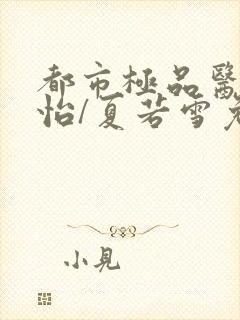 都市極品醫
怡/夏若雪
小見